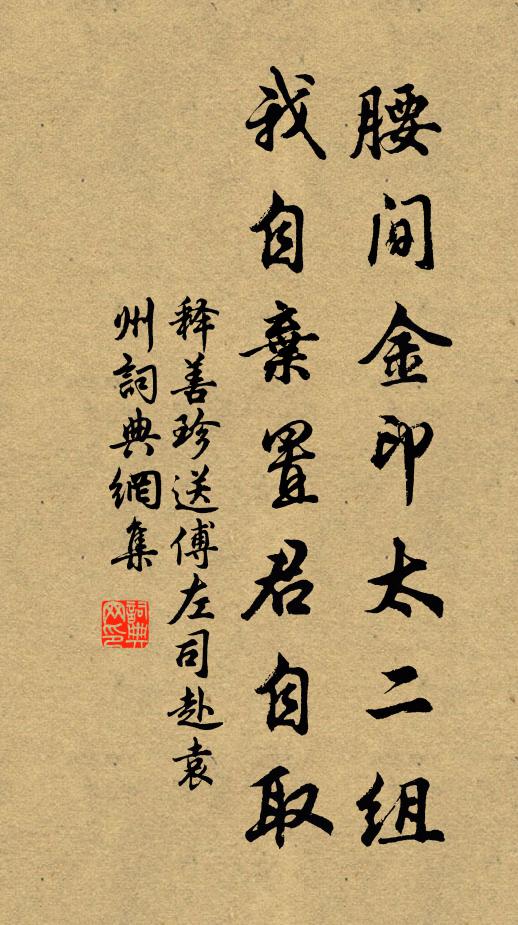 腰间金印太二组
我自棄置君自取
释善珍送傅左司赴袁
州詞典網集
詞典网印